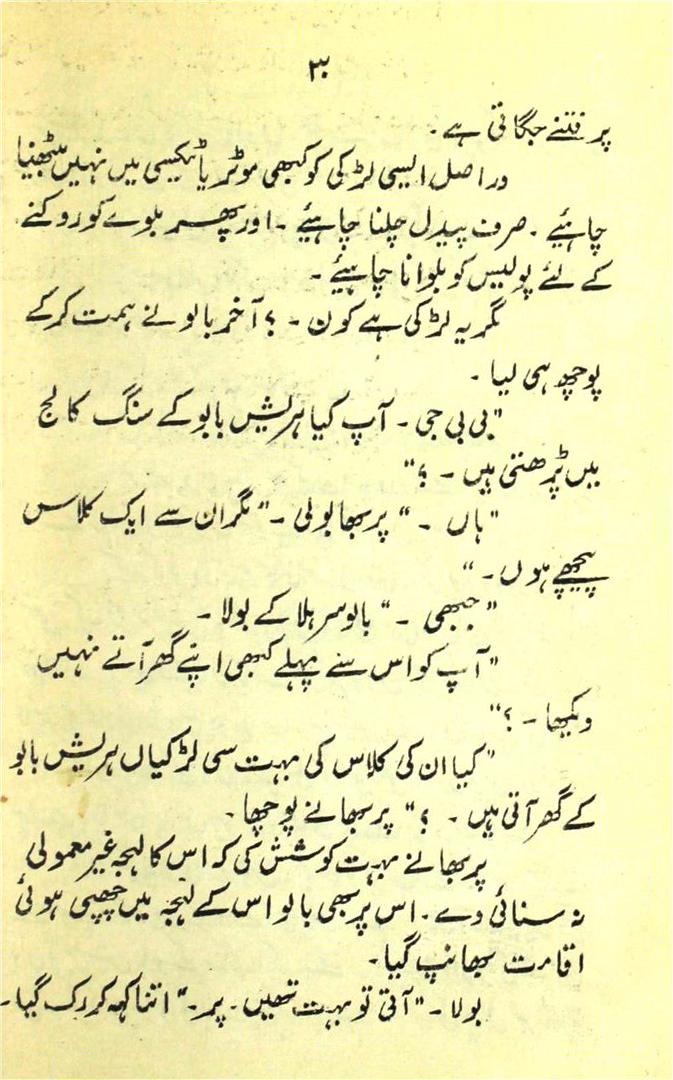 ۳
پر فتنے جگاتی ہے۔
دراصل ایسی لڑکی کو کبھی موٹر یا ٹیکسی میں نہیں بیٹھنا
چاہئیے ۔ صرف پیدل چلنا چاہئیے ۔ اور پھر بلوے کو روکنے
کے لئے پولیس کو بلوانا چاہئیے ۔
مگر یہ لڑکی ہے کون ۔ ؟ آخر بالو نے ہمت کرکے
پوچھ ہی لیا ۔
"بی بی جی ۔ آپ کیا ہریش بابو کے سنگ کالج
میں پڑھتی ہیں ۔ ؟"
"ہاں ۔ " پربھا بولی ۔ "مگر ان سے ایک کلاس
پیچھے ہوں ۔ "
"جبھی ۔ " بالو سر ہلا کے بولا ۔
"آپ کو اس سے پہلے کبھی اپنے گھر آتے نہیں
دیکھا ۔ ؟"
"کیا ان کی کلاس کی بہت سی لڑکیاں ہریش بابو
کے گھر آتی ہیں ۔ ؟" پربھا نے پوچھا ۔
پربھا نے بہت کوشش کی کہ اس کا لہجہ غیر معمولی
نہ سنائی دے ۔ اس پر بھی بالو اس کے لہجہ میں چھپی ہوئی
رقابت بھانپ گیا ۔
بولا ۔ "آتی تو بہت تھیں ۔ پر ۔ " اتنا کہہ کر رک گیا ۔